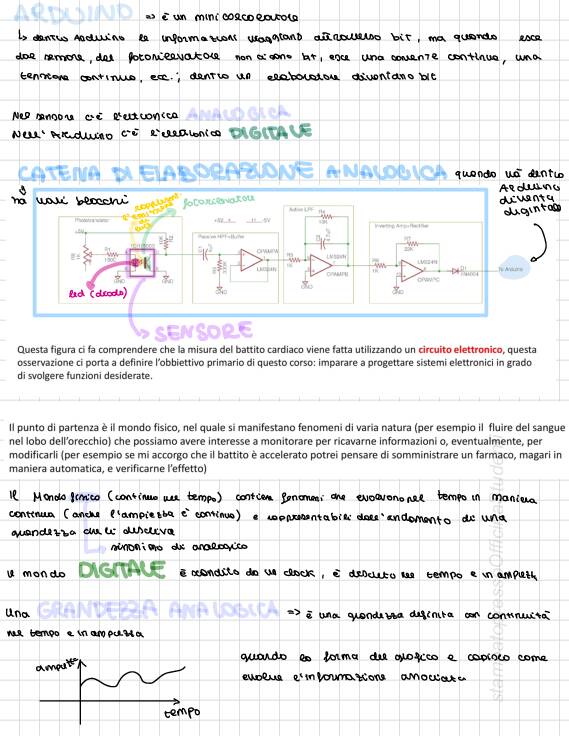 ARDUINO => è un mini calcolatore
↳ dentro Arduino le informazioni viaggiano attraverso bit, ma quando esce
dal sensore, dal fotorilevatore non ci sono bit, esce una corrente continua, una
tensione continua, ecc.; dentro un elaboratore diventano bit
Nel sensore c'è l'elettronica ANALOGICA
Nell'Arduino c'è l'elettronica DIGITALE
CATENA DI ELABORAZIONE ANALOGICA quando va dentro
Arduino
diventa
digitale
ha vari blocchi
fotorilevatore
Phototransistor
Passive HPF+Buffer
Active LPF
Inverting Amp+Rectifier
+5V
+5V
-5V
GND
GND
GND
GND
GND
GND
LM324N
LM324N
LM324N
OPAMPB
OPAMPC
1N4004
To Arduino
led (diodo)
SENSORE
Questa figura ci fa comprendere che la misura del battito cardiaco viene fatta utilizzando un circuito elettronico, questa
osservazione ci porta a definire l'obbiettivo primario di questo corso: imparare a progettare sistemi elettronici in grado
di svolgere funzioni desiderate.
Il punto di partenza è il mondo fisico, nel quale si manifestano fenomeni di varia natura (per esempio il fluire del sangue
nel lobo dell'orecchio) che possiamo avere interesse a monitorare per ricavarne informazioni o, eventualmente, per
modificarli (per esempio se mi accorgo che il battito è accelerato potrei pensare di somministrare un farmaco, magari in
maniera automatica, e verificarne l'effetto)
Il Mondo fisico (continuo nel tempo) contiene fenomeni che evolvono nel tempo in maniera
continua (anche l'ampiezza è continua) e rappresentabili dall'andamento di una
grandezza che li descriva
↳ sinonimo di analogico
Il mondo DIGITALE è scandito da un clock, è discreto nel tempo e in ampiezza
Una GRANDEZZA ANALOGICA => è una grandezza definita con continuità
nel tempo e in ampiezza
ampiezza
guardo la forma del grafico e capisco come
evolve l'informazione associata
tempo